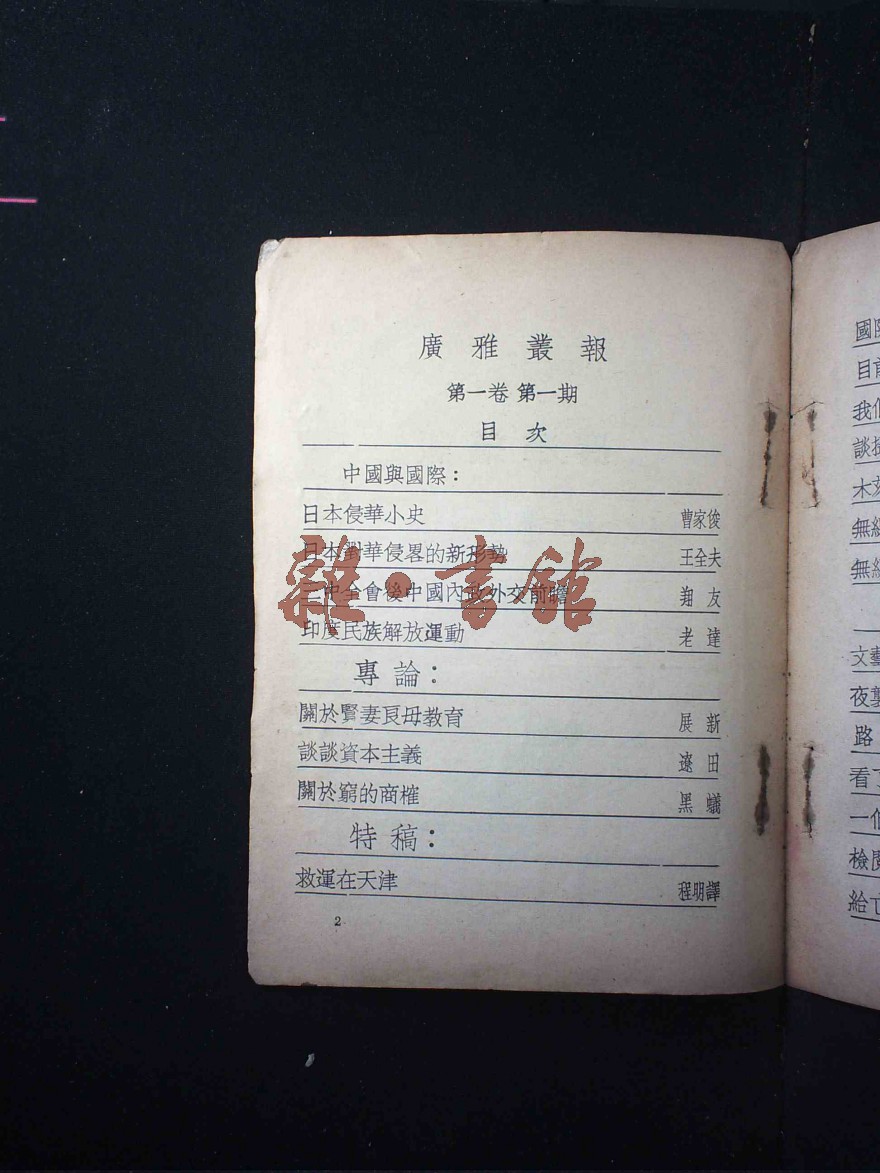 廣雅叢報
第一卷 第一期
目次
中國與國際：
日本侵華小史 曹家俊
日本對華侵畧的新形勢 王全夫
二中全會後中國內政外交前瞻 翔友
印度民族解放運動 老達
專論：
關於賢妻良母教育 展新
談談資本主義 遼田
關於窮的商榷 黑蟻
特稿：
救運在天津 程明譯
2
雜·書館
國際
目前
我們
談
木刻
無線
無線
文藝
夜襲
路
看了
一個
檢閱
給亡